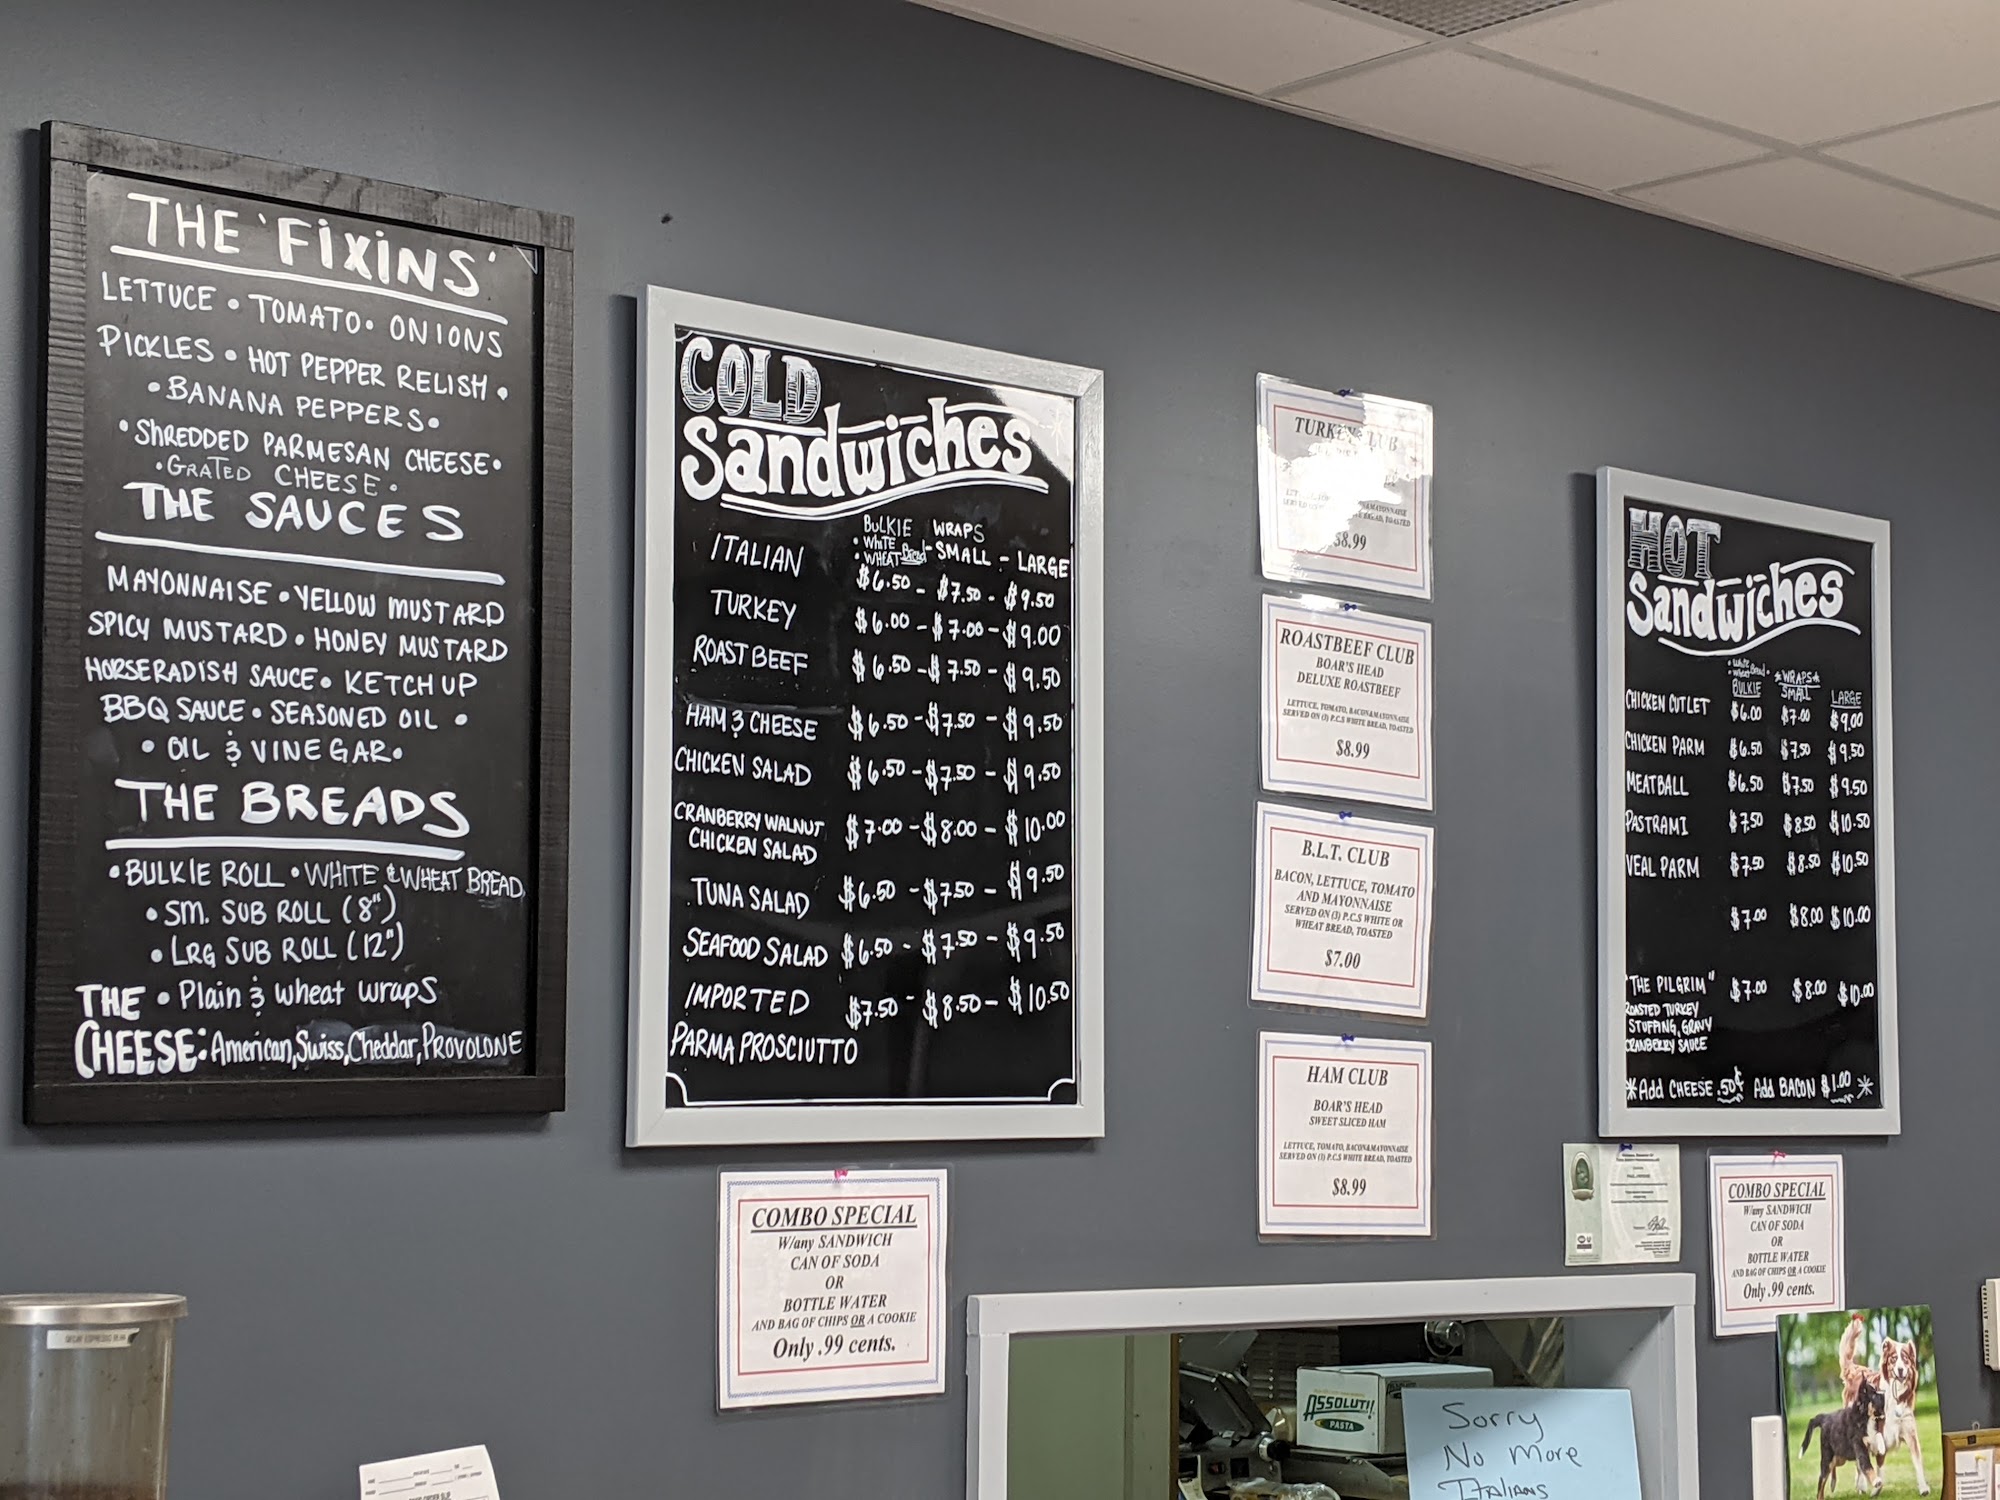 THE 'FIXINS'
LETTUCE • TOMATO • ONIONS
PICKLES • HOT PEPPER RELISH •
• BANANA PEPPERS •
• SHREDDED PARMESAN CHEESE •
• GRATED CHEESE •
THE SAUCES
MAYONNAISE • YELLOW MUSTARD
SPICY MUSTARD • HONEY MUSTARD
HORSERADISH SAUCE • KETCHUP
BBQ SAUCE • SEASONED OIL •
• OIL & VINEGAR •
THE BREADS
• BULKIE ROLL • WHITE & WHEAT BREAD
• SM. SUB ROLL (8")
• LRG SUB ROLL (12")
• Plain & wheat wraps
THE CHEESE: American, Swiss, Cheddar, PROVOLONE
COLD
Sandwiches
BULKIE WRAPS
• WHITE
• WHEAT Bread - SMALL - LARGE
ITALIAN $6.50 - $7.50 - $9.50
TURKEY $6.00 - $7.00 - $9.00
ROAST BEEF $6.50 - $7.50 - $9.50
HAM & CHEESE $6.50 - $7.50 - $9.50
CHICKEN SALAD $6.50 - $7.50 - $9.50
CRANBERRY WALNUT
CHICKEN SALAD $7.00 - $8.00 - $10.00
TUNA SALAD $6.50 - $7.50 - $9.50
SEAFOOD SALAD $6.50 - $7.50 - $9.50
IMPORTED $7.50 - $8.50 - $10.50
PARMA PROSCIUTTO
COMBO SPECIAL
W/any SANDWICH
CAN OF SODA
OR
BOTTLE WATER
AND BAG OF CHIPS OR A COOKIE
Only .99 cents.
TURKEY CLUB
$8.99
ROASTBEEF CLUB
BOAR'S HEAD
DELUXE ROASTBEEF
LETTUCE, TOMATO, BACON&MAYONNAISE
SERVED ON (3) P.C.S WHITE BREAD, TOASTED
$8.99
B.L.T. CLUB
BACON, LETTUCE, TOMATO
AND MAYONNAISE
SERVED ON (3) P.C.S WHITE OR
WHEAT BREAD, TOASTED
$7.00
HAM CLUB
BOAR'S HEAD
SWEET SLICED HAM
LETTUCE, TOMATO, BACON&MAYONNAISE
SERVED ON (3) P.C.S WHITE BREAD, TOASTED
$8.99
HOT
Sandwiches
• White
• Wheat Bread •
BULKIE *WRAPS* SMALL LARGE
CHICKEN CUTLET $6.00 $7.00 $9.00
CHICKEN PARM $6.50 $7.50 $9.50
MEATBALL $6.50 $7.50 $9.50
PASTRAMI $7.50 $8.50 $10.50
VEAL PARM $7.50 $8.50 $10.50
$7.00 $8.00 $10.00
"THE PILGRIM" $7.00 $8.00 $10.00
ROASTED TURKEY
STUFFING, GRAVY
CRANBERRY SAUCE
*Add CHEESE .50¢ Add BACON $1.00*
COMBO SPECIAL
W/any SANDWICH
CAN OF SODA
OR
BOTTLE WATER
AND BAG OF CHIPS OR A COOKIE
Only .99 cents.
ASSOLUTI!
PASTA
Sorry
No More
Italians